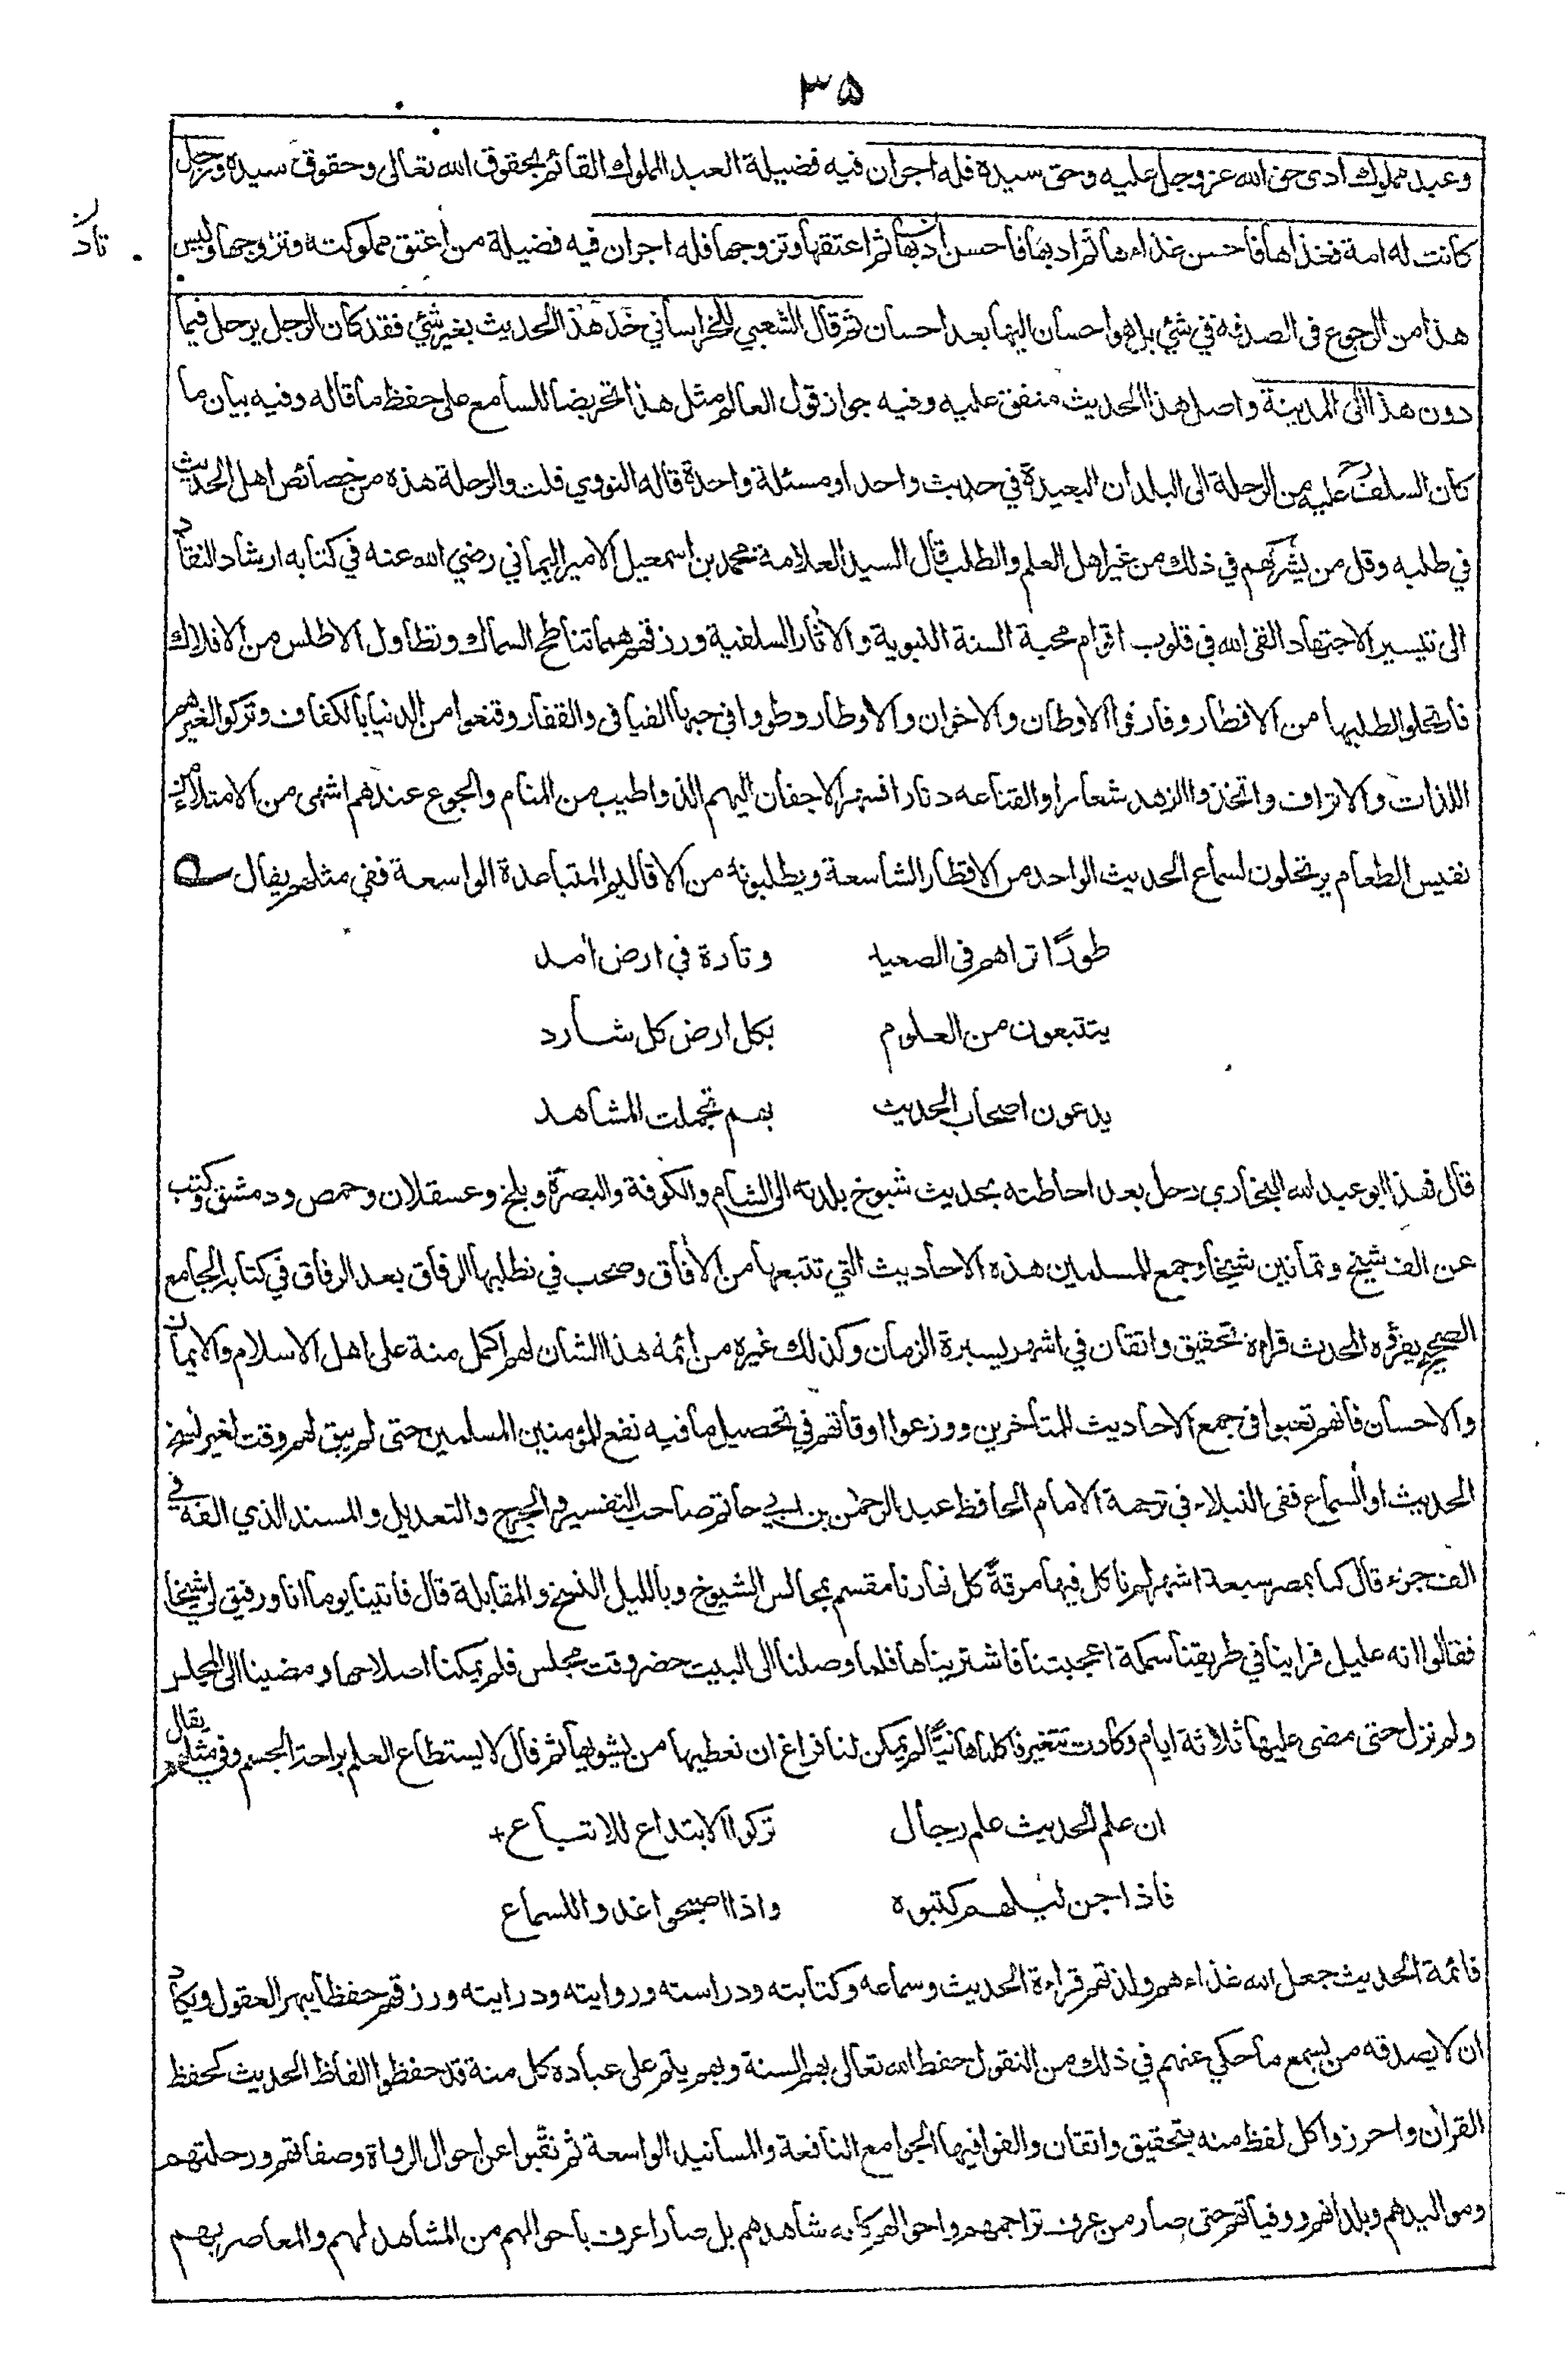 ٣٥
وعبد مملوك ادى حق الله عز وجل عليه وحق سيده فله اجران فيه فضيلة العبد المملوك القائم بحقوق الله تعالى وحقوق سيده ورجل
كانت له امة فغذاها فاحسن غذاءها ثم ادبها فاحسن ادبها ثم اعتقها وتزوجها فله اجران فيه فضيلة من اعتق مملوكته وتزوجها وليس
هذا من الرجوع فى الصدقة في شئ بل هو احسان اليها بعد احسان ثم قال الشعبي للخراساني خذ هذا الحديث بغير شئ فقد كان الرجل يرحل فيما
دون هذا الى المدينة واصل هذا الحديث متفق عليه وفيه جواز قول العالم مثل هذا تحريضا للسامع على حفظ ما قاله وفيه بيان ما
كان السلف عليه من الرحلة الى البلدان البعيدة في حديث واحد او مسئلة واحدة قاله النووي قلت والرحلة هذه من خصائص اهل الحديث
في طلبه وقل من يشركهم في ذلك من غير اهل العلم والطلب قال السيد العلامة محمد بن اسمعيل الامير اليماني رضي الله عنه في كتابه ارشاد النقاد
الى تيسير الاجتهاد القى الله في قلوب اقوام محبة السنة النبوية والاثار السلفية ورزقهم همما تناطح السماك وتطاول الاطلس من الافلاك
فارتحلوا لطلبها من الاقطار وفارقوا الاوطان والاخوان والاوطار وطووا في حبها الفيافى والقفار وقنعوا من الدنيا بالكفاف وتركوا لغيرهم
اللذات والاتراف واتخذوا الزهد شعارا والقناعه دثارا فسهر الاجفان اليهم الذ واطيب من المنام والجوع عندهم اشهى من الامتلاء من
نفيس الطعام يرتحلون لسماع الحديث الواحد من الاقطار الشاسعة ويطلبونه من الاقاليم المتباعدة الواسعة ففي مثلهم يقال
طورًا تراهم فى الصعيد وتارة في ارض امد
يتتبعون من العلوم بكل ارض كل شارد
يدعون اصحاب الحديث بهم تجملت المشاهد
قال فهذا ابو عبد الله البخاري رحل بعد احاطته بحديث شيوخ بلدته الى الشام والكوفة والبصرة وبلخ وعسقلان وحمص ودمشق وكتب
عن الف شيخ وثمانين شيخا وجمع للمسلمين هذه الاحاديث التي تتبعها من الافاق وصحب في تطلبها الرفاق بعد الرفاق في كتابه الجامع
الصحيح يقرؤه المحدث قراءة تحقيق واتقان في اشهر يسيرة الزمان وكذلك غيره من ائمة هذا الشان لهم اكمل منة على اهل الاسلام والايمان
والاحسان فانهم تعبوا فى جمع الاحاديث للمتاخرين ووزعوا اوقاتهم في تحصيل ما فيه نفع للمؤمنين المسلمين حتى لم يبق لهم وقت لغير نسخ
الحديث او السماع ففى النبلاء فى ترجمة الامام الحافظ عبد الرحمن بن ابي حاتم صاحب التفسير والجرح والتعديل والمسند الذي الفه في
الف جزء قال كنا بمصر سبعة اشهر لم ناكل فيها مرقة كل نهارنا مقسم بمجالس الشيوخ وبالليل النسخ والمقابلة قال فاتينا يوما انا ورفيق لي شيخا
فقالوا انه عليل فراينا في طريقنا سمكة اعجبتنا فاشتريناها فلما وصلنا الى البيت حضر وقت مجلس فلم يمكنا اصلاحها ومضينا الى المجلس
ولم نزل حتى مضى عليها ثلاثة ايام وكادت تتغير فاكلناها نيًّا لم يكن لنا فراغ ان نعطيها من يشويها ثم قال لا يستطاع العلم براحة الجسم وفي مثلهم يقال
ان علم الحديث علم رجال تركوا الابتداع للاتباع +
فاذا جن ليلهم كتبوه واذا اصبحوا غدوا للسماع
فائمة الحديث جعل الله غذاءهم ولذتهم قراءة الحديث وسماعه وكتابته ودراسته وروايته ودرايته ورزقهم حفظا يبهر العقول ويكاد
ان لا يصدقه من يسمع ما حكي عنهم في ذلك من النقول حفظ الله تعالى بهم السنة وبهم يتم على عباده كل منة قد حفظوا الفاظ الحديث كحفظ
القران واحرزوا كل لفظ منه بتحقيق واتقان والفوا فيها الجوامع النافعة والمسانيد الواسعة ثم نقبوا عن احوال الرواة وصفاتهم ورحلتهم
ومواليدهم وبلدانهم ووفياتهم حتى صار من عرف تراجمهم واحوالهم كانه شاهدهم بل صار اعرف باحوالهم من المشاهد لهم والمعاصر بهم